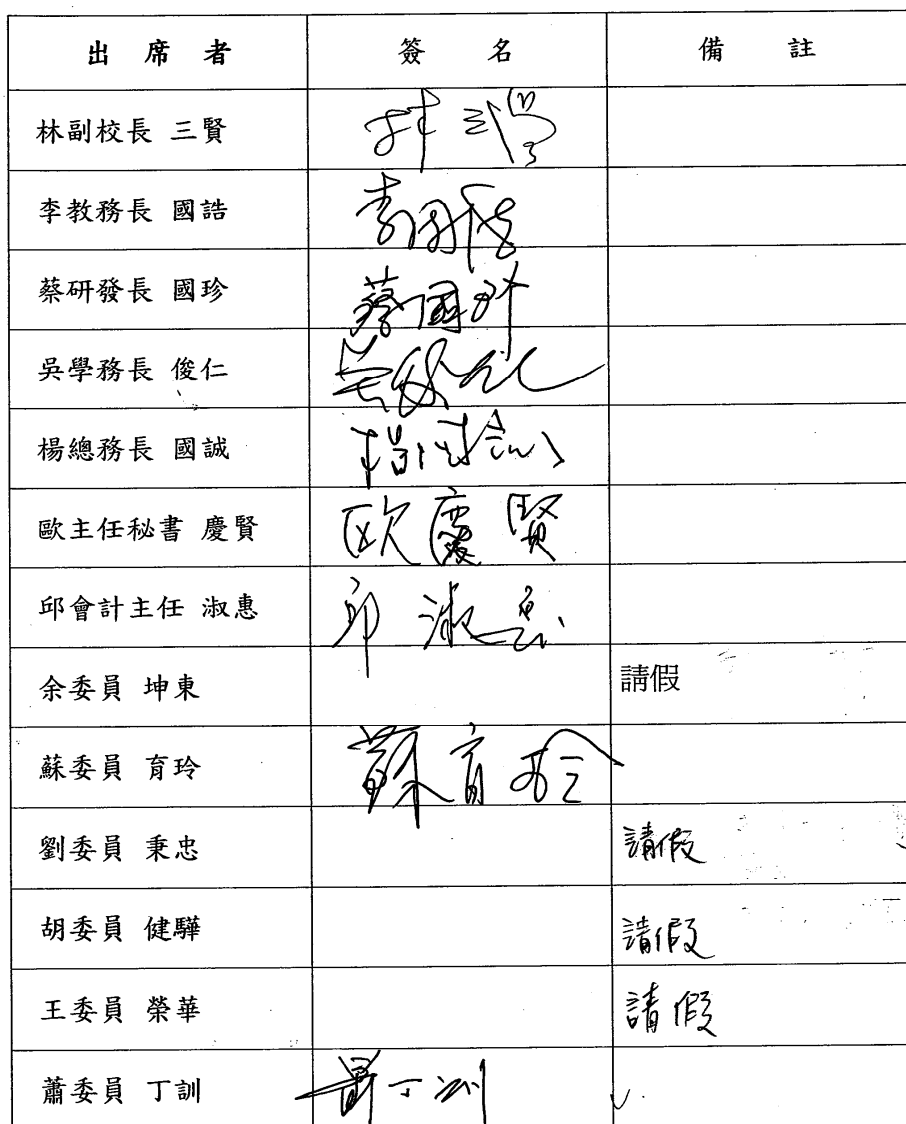 出席者 簽名 備註
林副校長 三賢 林三賢
李教務長 國誥 李國誥
蔡研發長 國珍 蔡國珍
吳學務長 俊仁 吳俊仁
楊總務長 國誠 楊國誠
歐主任秘書 慶賢 欧慶賢
邱會計主任 淑惠 邱淑惠
余委員 坤東 請假
蘇委員 育玲 蘇育玲
劉委員 秉忠 請假
胡委員 健驊 請假
王委員 榮華 請假
蕭委員 丁訓 蕭丁訓